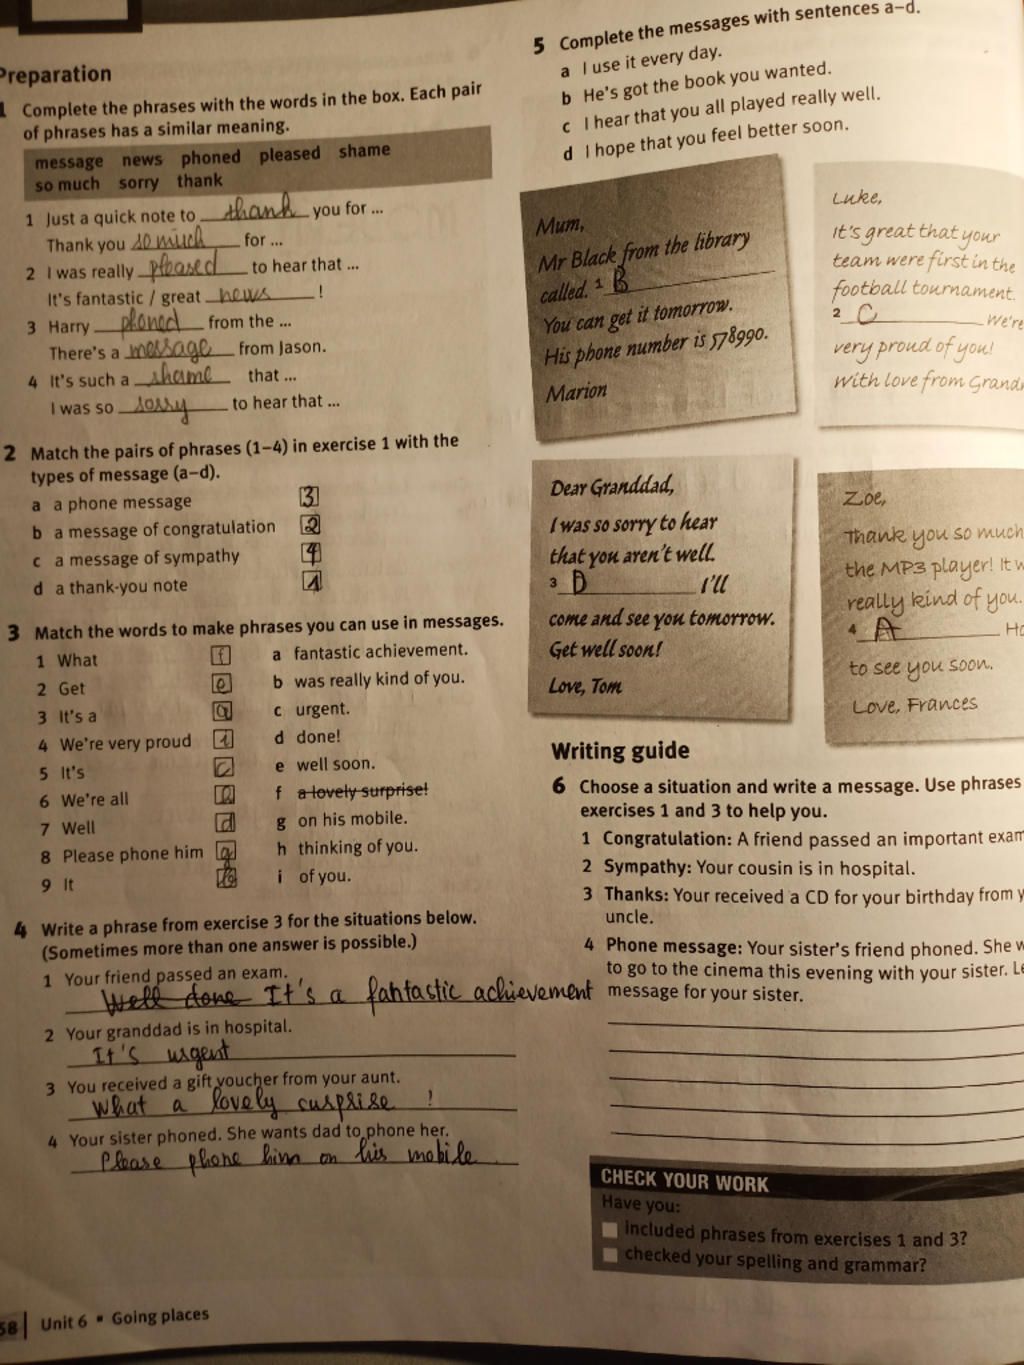 Preparation
1 Complete the phrases with the words in the box. Each pair
of phrases has a similar meaning.
message news phoned pleased shame
so much sorry thank
1 Just a quick note to thank you for ...
Thank you so much for ...
2 I was really pleased to hear that ...
It's fantastic / great news !
3 Harry phoned from the ...
There's a message from Jason.
4 It's such a shame that ...
I was so sorry to hear that ...
2 Match the pairs of phrases (1–4) in exercise 1 with the
types of message (a–d).
a a phone message 3
b a message of congratulation 2
c a message of sympathy 4
d a thank-you note 1
3 Match the words to make phrases you can use in messages.
1 What f a fantastic achievement.
2 Get e b was really kind of you.
3 It's a a c urgent.
4 We're very proud i d done!
5 It's c e well soon.
6 We're all f a lovely surprise!
7 Well d g on his mobile.
8 Please phone him g h thinking of you.
9 It i of you.
4 Write a phrase from exercise 3 for the situations below.
(Sometimes more than one answer is possible.)
1 Your friend passed an exam.
Well done It's a fantastic achievement
2 Your granddad is in hospital.
It's urgent
3 You received a gift voucher from your aunt.
What a lovely curprise !
4 Your sister phoned. She wants dad to phone her.
Please phone him on his mobile.
58 Unit 6 • Going places
5 Complete the messages with sentences a–d.
a I use it every day.
b He's got the book you wanted.
c I hear that you all played really well.
d I hope that you feel better soon.
Mum,
Mr Black from the library
called. 1 B
You can get it tomorrow.
His phone number is 578990.
Marion
Luke,
It's great that your
team were first in the
football tournament.
2 C We're
very proud of you!
With love from Grand
Dear Granddad,
I was so sorry to hear
that you aren't well.
3 D I'll
come and see you tomorrow.
Get well soon!
Love, Tom
Zoe,
Thank you so much
the MP3 player! It w
really kind of you.
4 A Ho
to see you soon.
Love, Frances
Writing guide
6 Choose a situation and write a message. Use phrases
exercises 1 and 3 to help you.
1 Congratulation: A friend passed an important exam
2 Sympathy: Your cousin is in hospital.
3 Thanks: Your received a CD for your birthday from y
uncle.
4 Phone message: Your sister's friend phoned. She w
to go to the cinema this evening with your sister. Le
message for your sister.
CHECK YOUR WORK
Have you:
included phrases from exercises 1 and 3?
checked your spelling and grammar?